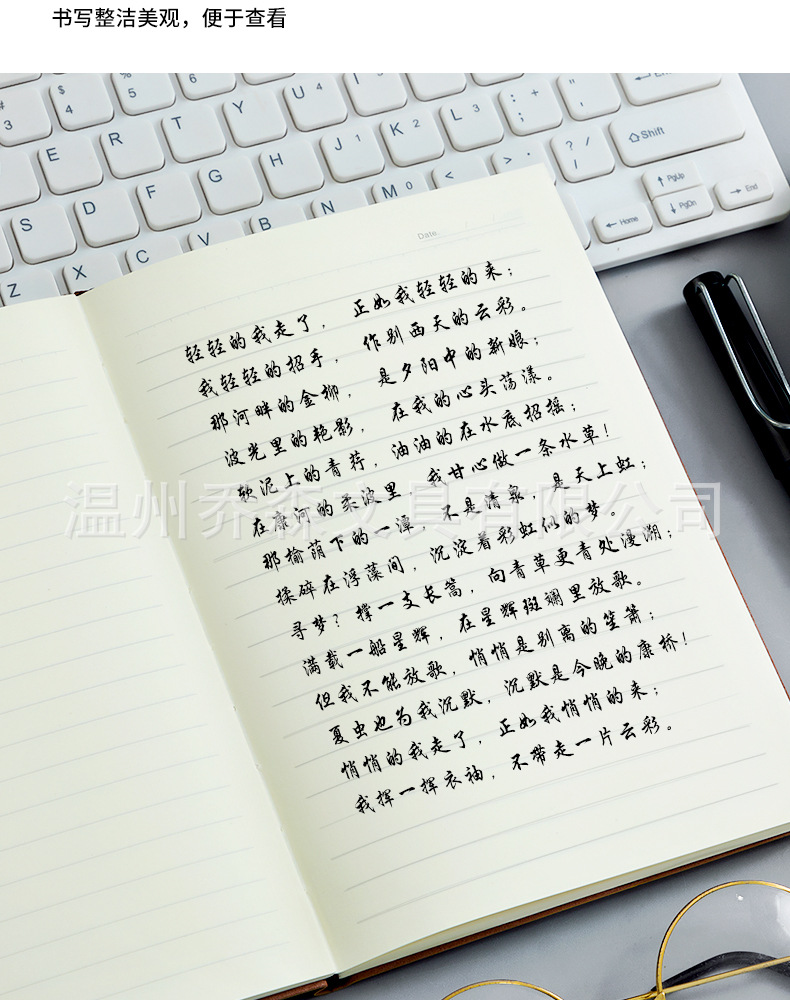 书写整洁美观，便于查看
# 3
$ 4
% 5
E R T Y U 4 I 5
S D F G H J 1 K 2 L 3 : ; " '
Z X C V B N M 0 < , > . ? / ⇧Shift
↑ PgUp
← Home ↓ PgDn → End
Date / /
轻轻的我走了， 正如我轻轻的来；
我轻轻的招手， 作别西天的云彩。
那河畔的金柳， 是夕阳中的新娘；
波光里的艳影， 在我的心头荡漾。
软泥上的青荇，油油的在水底招摇；
在康河的柔波里，我甘心做一条水草！
那榆荫下的一潭，不是清泉，是天上虹；
揉碎在浮藻间，沉淀着彩虹似的梦。
寻梦？撑一支长篙，向青草更青处漫溯；
满载一船星辉，在星辉斑斓里放歌。
但我不能放歌，悄悄是别离的笙箫；
夏虫也为我沉默，沉默是今晚的康桥！
悄悄的我走了，正如我悄悄的来；
我挥一挥衣袖，不带走一片云彩。
温州乔森文具有限公司